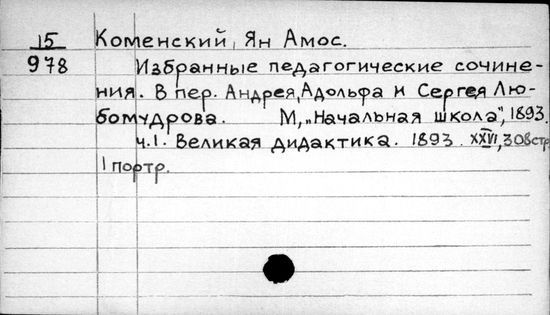 15 Коменский, Ян Амос.
978 Избранные педагогические сочине-
ния. В пер. Андрея, Адольфа и Сергея Лю-
бомудрова. М, „Начальная школа", 1893.
ч.1. Великая дидактика. 1893. XXVI, 308 стр
1 портр.